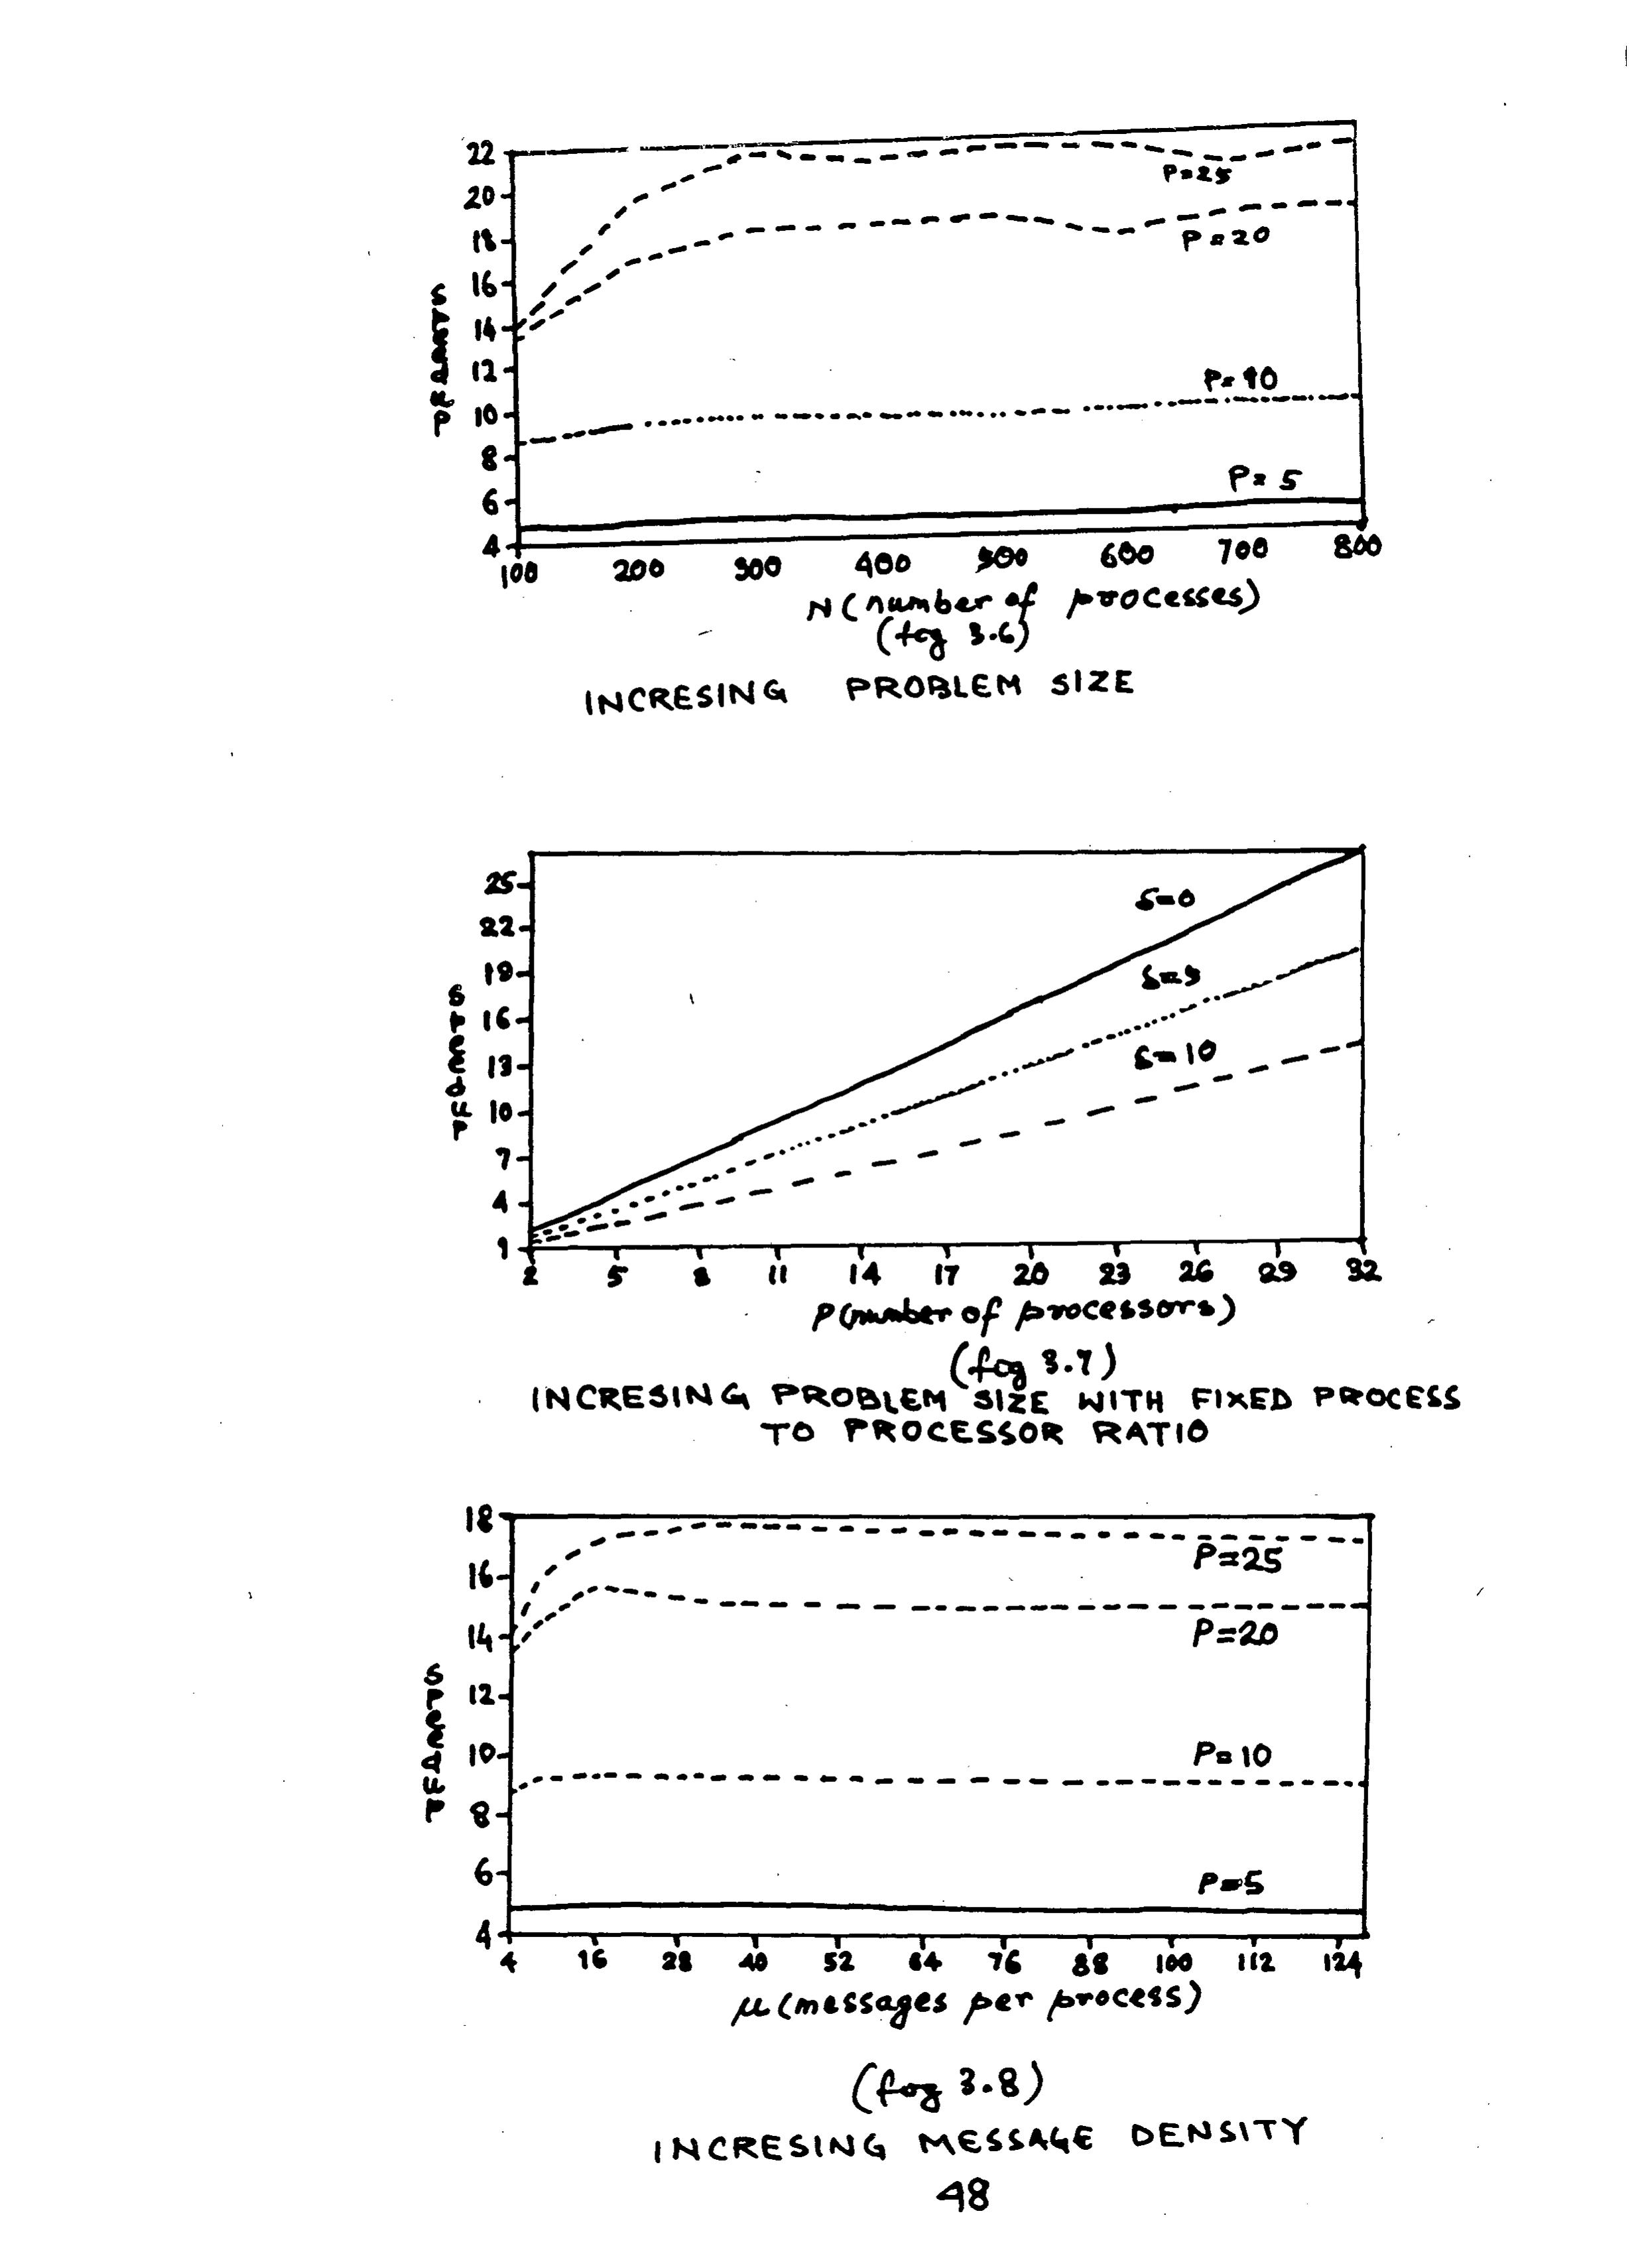 22
20
18
16
14
12
10
8
6
4
Speedup
P=25
P=20
P=10
P=5
100 200 300 400 500 600 700 800
N (number of processes)
(fig 3.6)
INCRESING PROBLEM SIZE
25
22
19
16
13
10
7
4
1
Speedup
S=0
S=5
S=10
2 5 8 11 14 17 20 23 26 29 32
P (number of processors)
(fig 3.7)
INCRESING PROBLEM SIZE WITH FIXED PROCESS
TO PROCESSOR RATIO
18
16
14
12
10
8
6
4
Speedup
P=25
P=20
P=10
P=5
4 16 28 40 52 64 76 88 100 112 124
μ (messages per process)
(fig 3.8)
INCRESING MESSAGE DENSITY
48